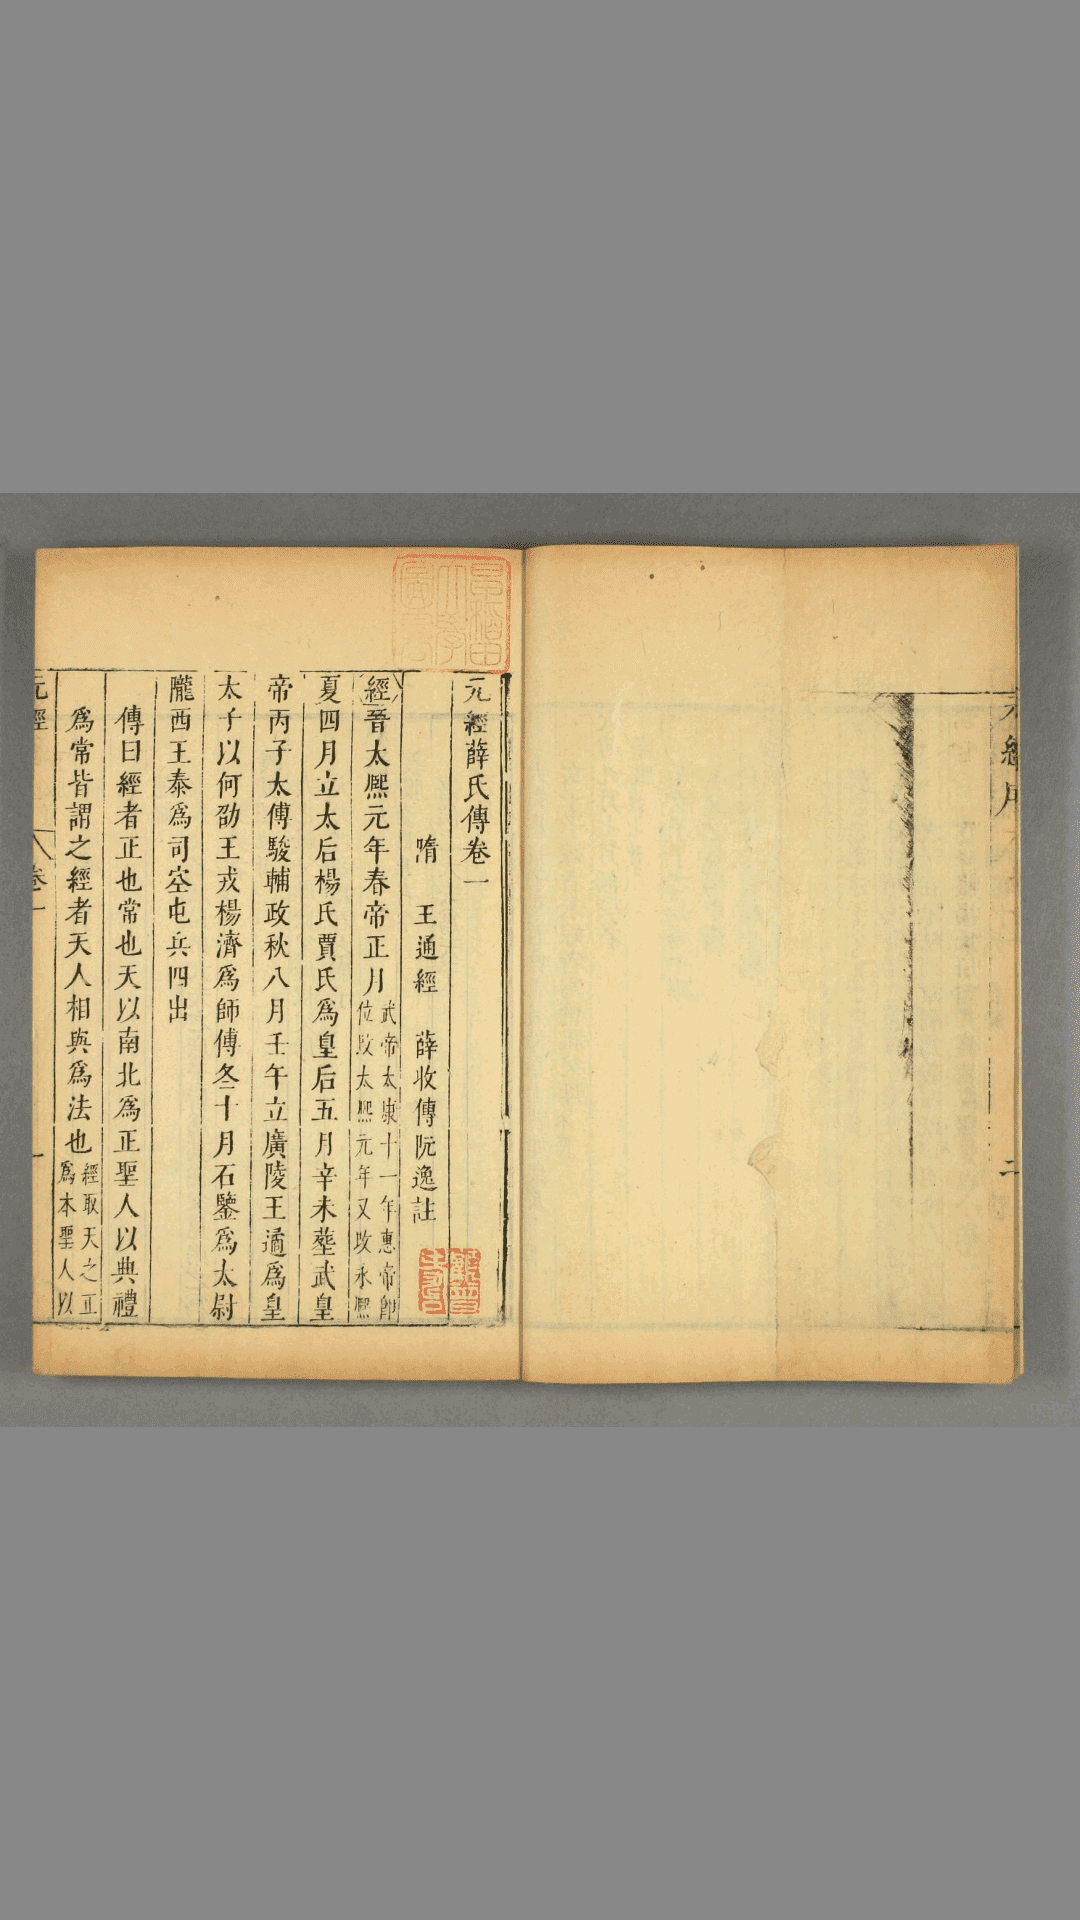 元經薛氏傳卷一
隋　王通經　薛收傳阮逸註
經晉太熙元年春帝正月武帝太康十一年惠帝卽位改太熙元年又改永熙
夏四月立太后楊氏賈氏爲皇后五月辛未塟武皇
帝丙子太傅駿輔政秋八月壬午立廣陵王遹爲皇
太子以何劭王戎楊濟爲師傅冬十月石鑒爲太尉
隴西王泰爲司空屯兵四出
傳曰經者正也常也天以南北爲正聖人以典禮
爲常皆謂之經者天人相與爲法也經取天之正爲本聖人以
元經
卷一
一